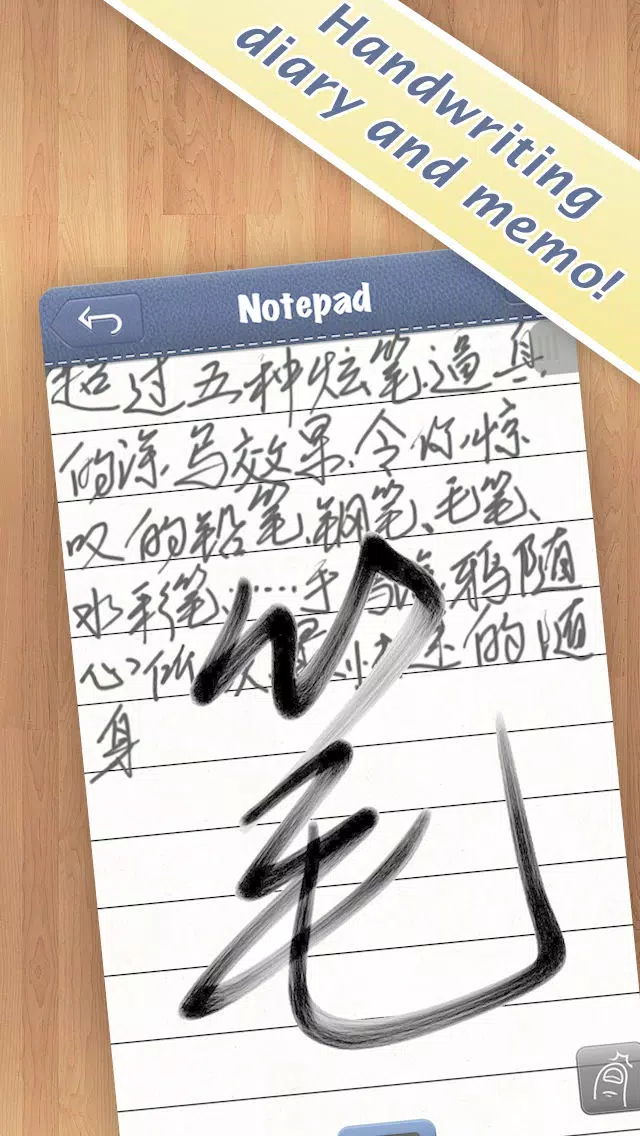 Handwriting
diary and memo!
Notepad
超过五种炫笔逼身
的涂鸟效果、令你惊
叹的铅笔、钢笔、毛笔、
水彩笔、……手 鸦随
心所 的随
身
笔